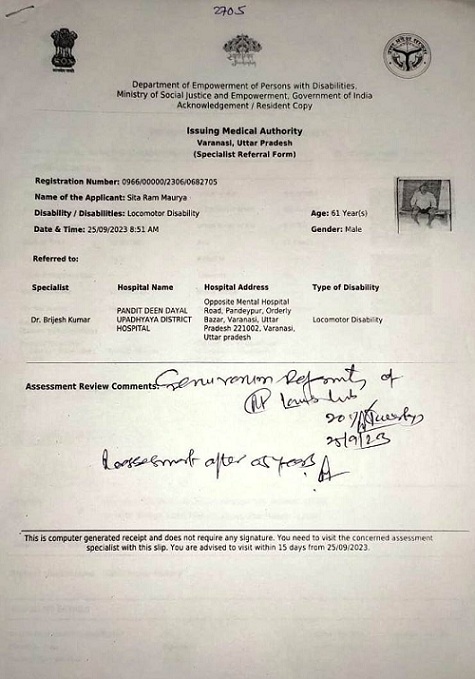 2705
Department of Empowerment of Persons with Disabilities,
Ministry of Social Justice and Empowerment, Government of India
Acknowledgement / Resident Copy
Issuing Medical Authority
Varanasi, Uttar Pradesh
(Specialist Referral Form)
Registration Number: 0966/00000/2306/0682705
Name of the Applicant: Sita Ram Maurya
Disability / Disabilities: Locomotor Disability Age: 61 Year(s)
Date & Time: 25/09/2023 8:51 AM Gender: Male
Referred to:
Specialist Hospital Name Hospital Address Type of Disability
Dr. Brijesh Kumar
PANDIT DEEN DAYAL
UPADHYAYA DISTRICT
HOSPITAL
Opposite Mental Hospital
Road, Pandeypur, Orderly
Bazar, Varanasi, Uttar
Pradesh 221002, Varanasi,
Uttar pradesh
Locomotor Disability
Assessment Review Comments: of
25/9/23
after 05 years
This is computer generated receipt and does not require any signature. You need to visit the concerned assessment
specialist with this slip. You are advised to visit within 15 days from 25/09/2023.